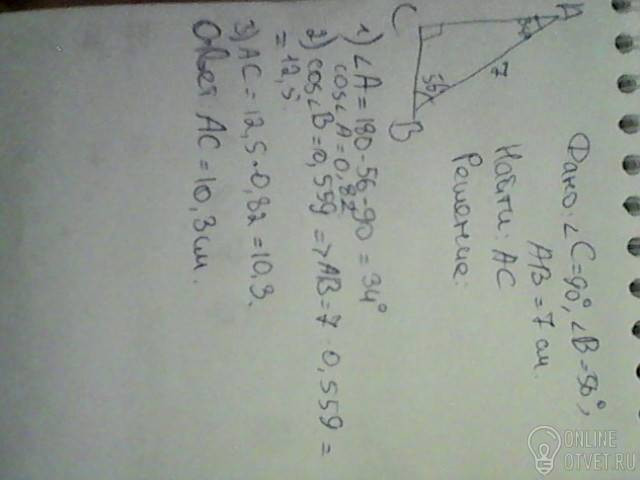 Дано: ∠C=90°, ∠B=56°,
AB = 7 см.
Найти: AC
Решение:
A
34
7
C
56
B
1) ∠A = 180-56-90 = 34°
cos∠A = 0,82
2) cos∠B = 0,559 => AB = 7 · 0,559 =
= 12,5.
3) AC = 12,5 · 0,82 = 10,3.
Ответ: AC = 10,3 см.
ONLINE
OTVET.RU